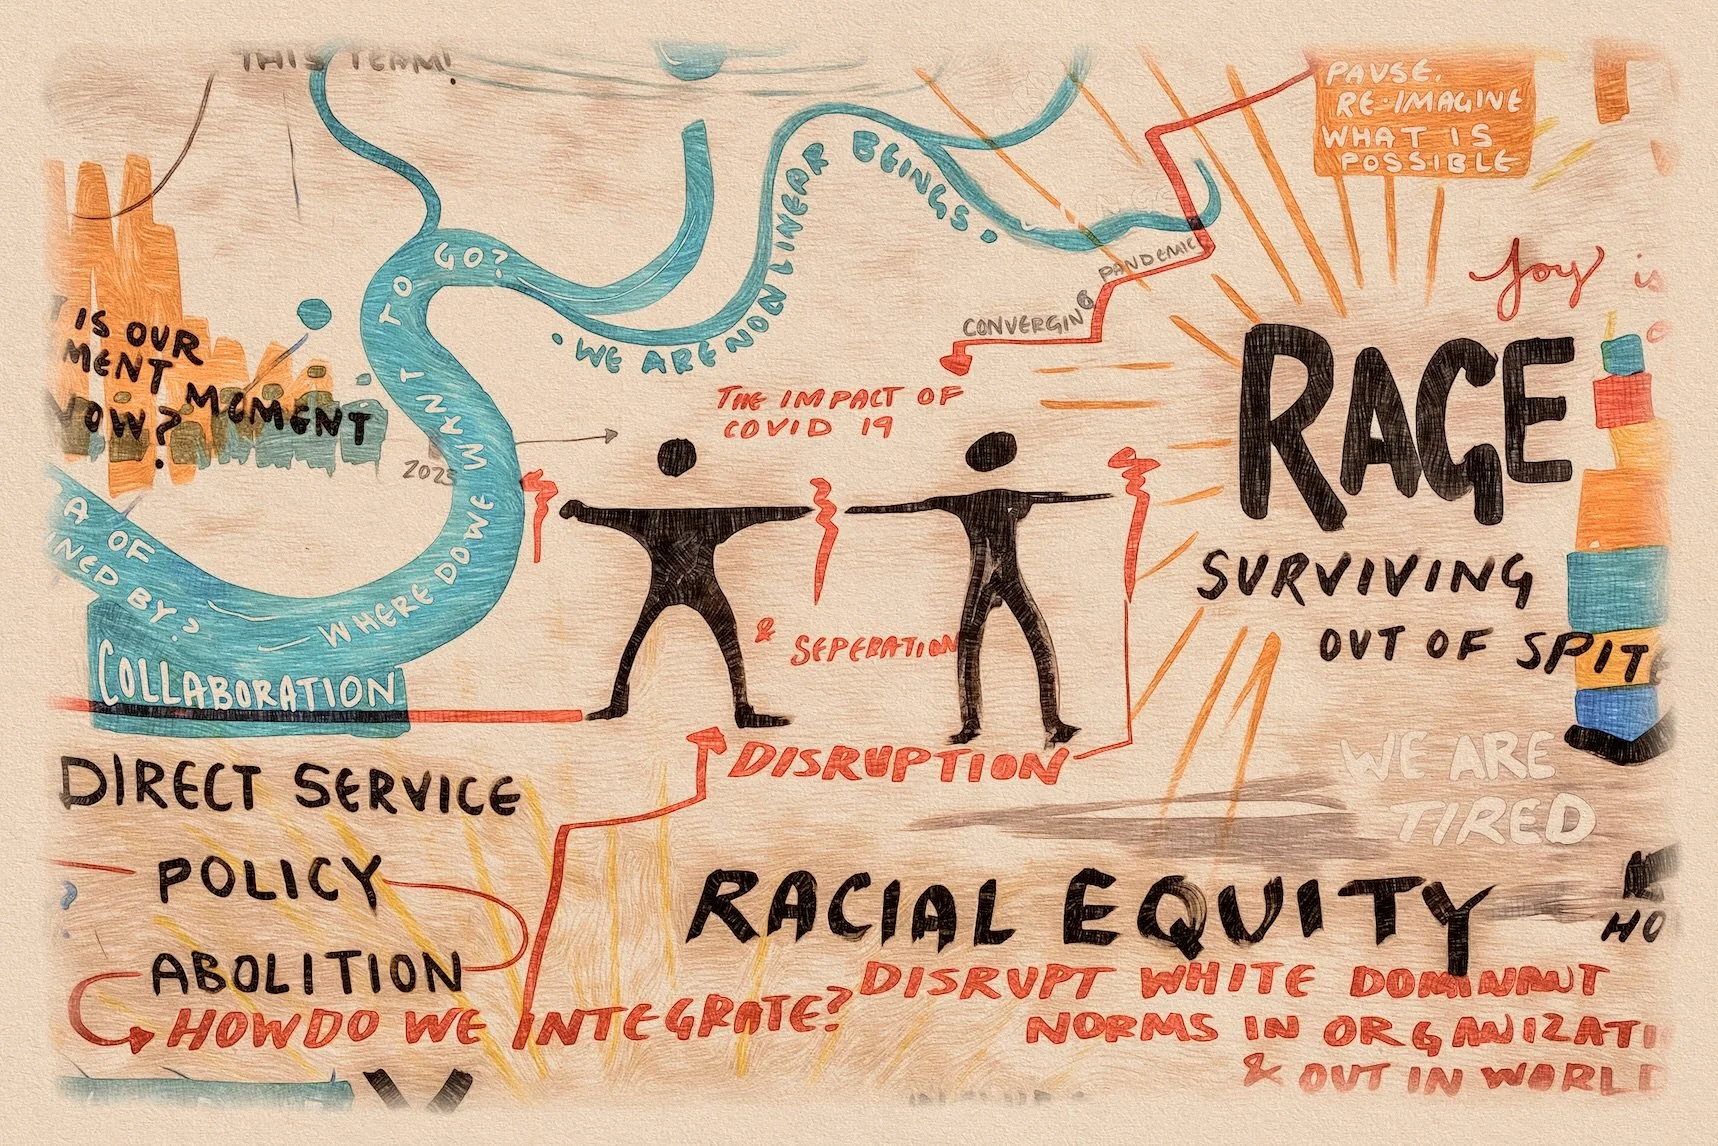 THIS TEAM!
PAUSE.
RE-IMAGINE
WHAT IS
POSSIBLE
WE ARE NONLINEAR BEINGS.
PANDEMIC
CONVERGING
Joy is
IS OUR
MENT
NOW?
MOMENT
2025
WHERE DO WE WANT TO GO?
A OF
INED BY?
COLLABORATION
THE IMPACT OF
COVID 19
& SEPERATION
DISRUPTION
RAGE
SURVIVING
OUT OF SPITE
WE ARE
TIRED
DIRECT SERVICE
POLICY
ABOLITION
HOW DO WE INTEGRATE?
RACIAL EQUITY
HO
DISRUPT WHITE DOMINANT
NORMS IN ORGANIZATI
& OUT IN WORLD